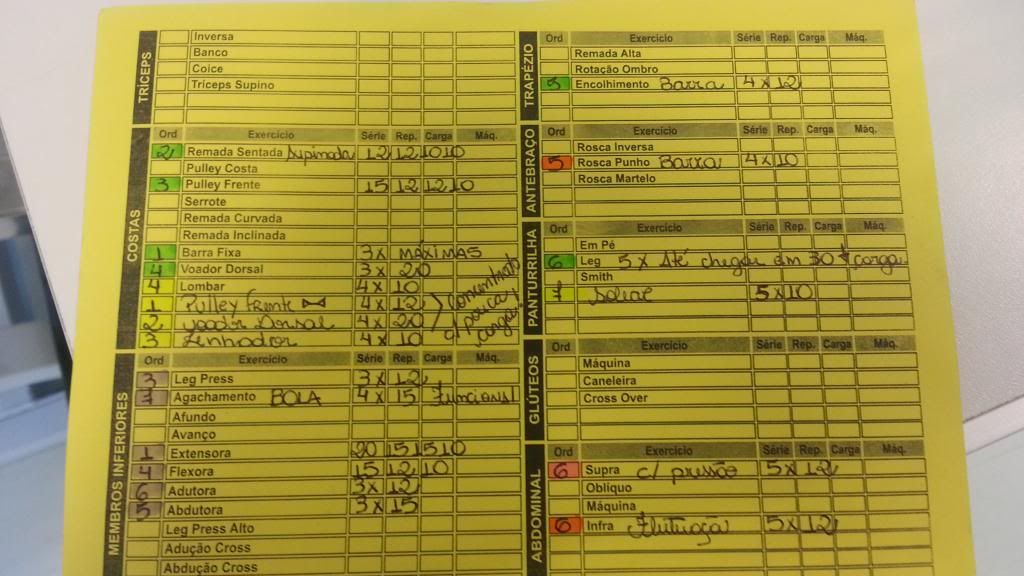 TRÍCEPS
Inversa
Banco
Coice
Tríceps Supino
COSTAS
Ord Exercício Série Rep. Carga Máq.
2 Remada Sentada supinada 12 12 10 10
Pulley Costa
3 Pulley Frente 15 12 12 10
Serrote
Remada Curvada
Remada Inclinada
1 Barra Fixa 3x MÁXIMAS
4 Voador Dorsal 3x 20
4 Lombar 4x 10
1 Pulley Frente 4x 12
2 Voador Dorsal 4x 20
3 Lenhador 4x 10
c/ pouca carga
MEMBROS INFERIORES
Ord Exercício Série Rep. Carga Máq.
3 Leg Press 3x 12
Agachamento BOLA 4x 15 Funcional
Afundo
Avanço
1 Extensora 20 15 15 10
4 Flexora 15 12 10
6 Adutora 3x 12
5 Abdutora 3x 15
Leg Press Alto
Adução Cross
Abdução Cross
TRAPÉZIO
Ord Exercício Série Rep. Carga Máq.
Remada Alta
Rotação Ombro
5 Encolhimento Barra 4x12
ANTEBRAÇO
Ord Exercício Série Rep. Carga Máq.
Rosca Inversa
5 Rosca Punho Barra 4x10
Rosca Martelo
PANTURRILHA
Ord Exercício Série Rep. Carga Máq.
Em Pé
6 Leg 5x Até chegar em 30 + carga
Smith
7 Solear 5x10
GLÚTEOS
Ord Exercício Série Rep. Carga Máq.
Máquina
Caneleira
Cross Over
ABDOMINAL
Ord Exercício Série Rep. Carga Máq.
6 Supra c/ pressão 5x12
Oblíquo
Máquina
6 Infra Flutuação 5x12